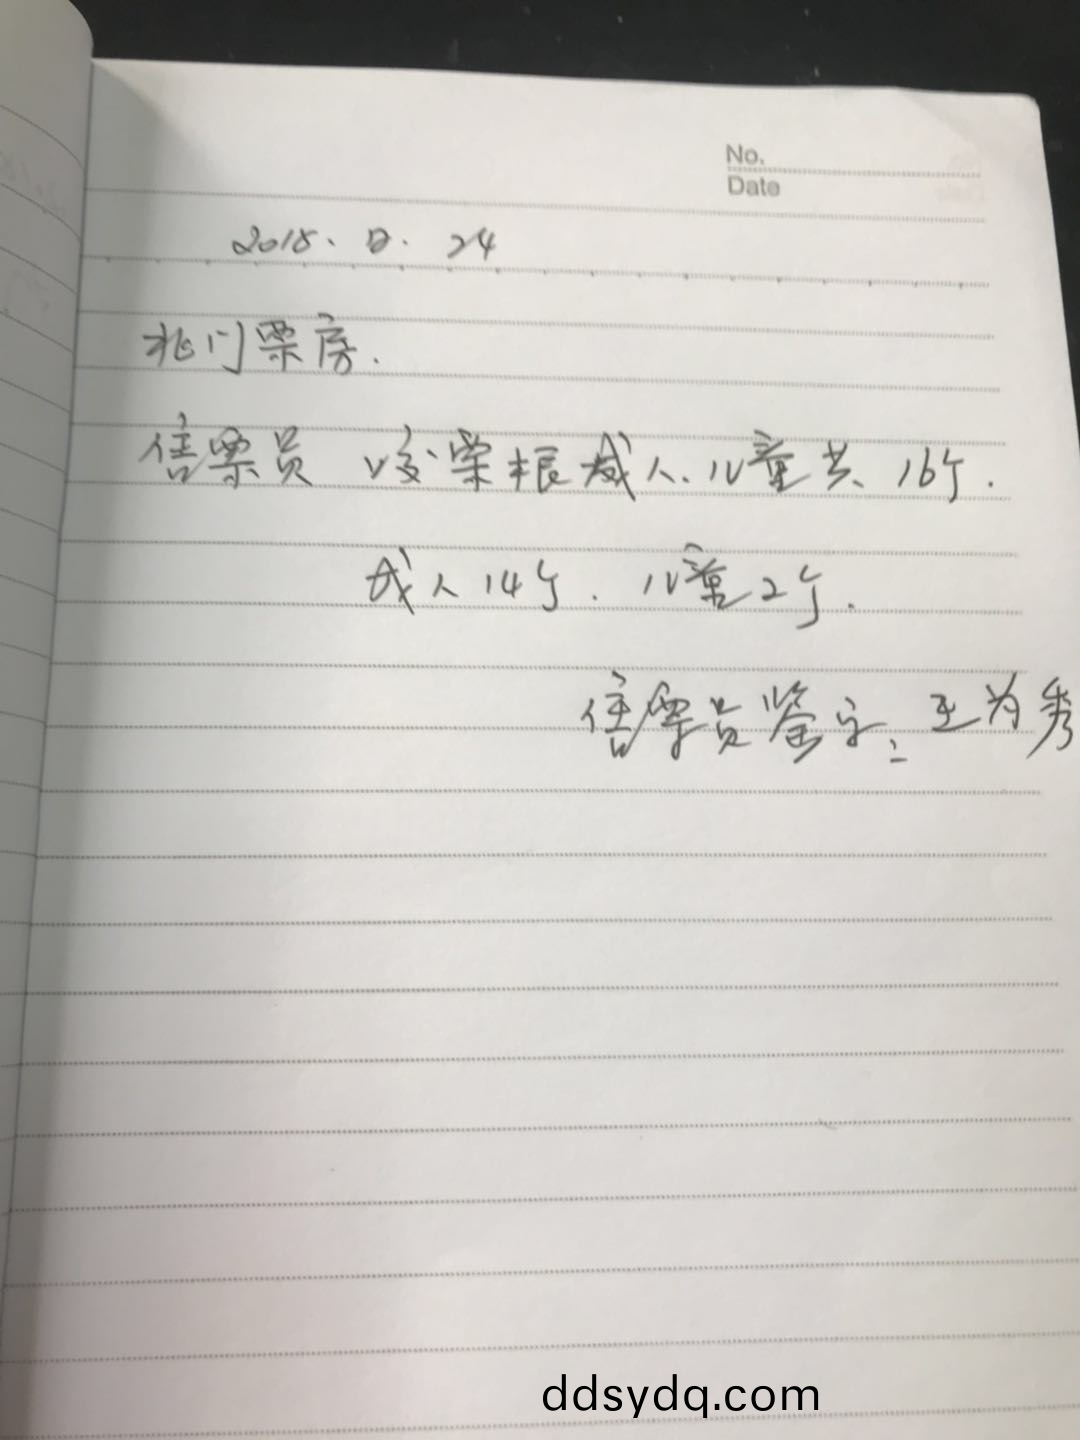 No.
Date
2018. 2. 24
北门票房.
售票员 收票根成人、儿童共16个.
成人14个. 儿童2个.
售票员鉴字: 王为秀
ddsydq.com